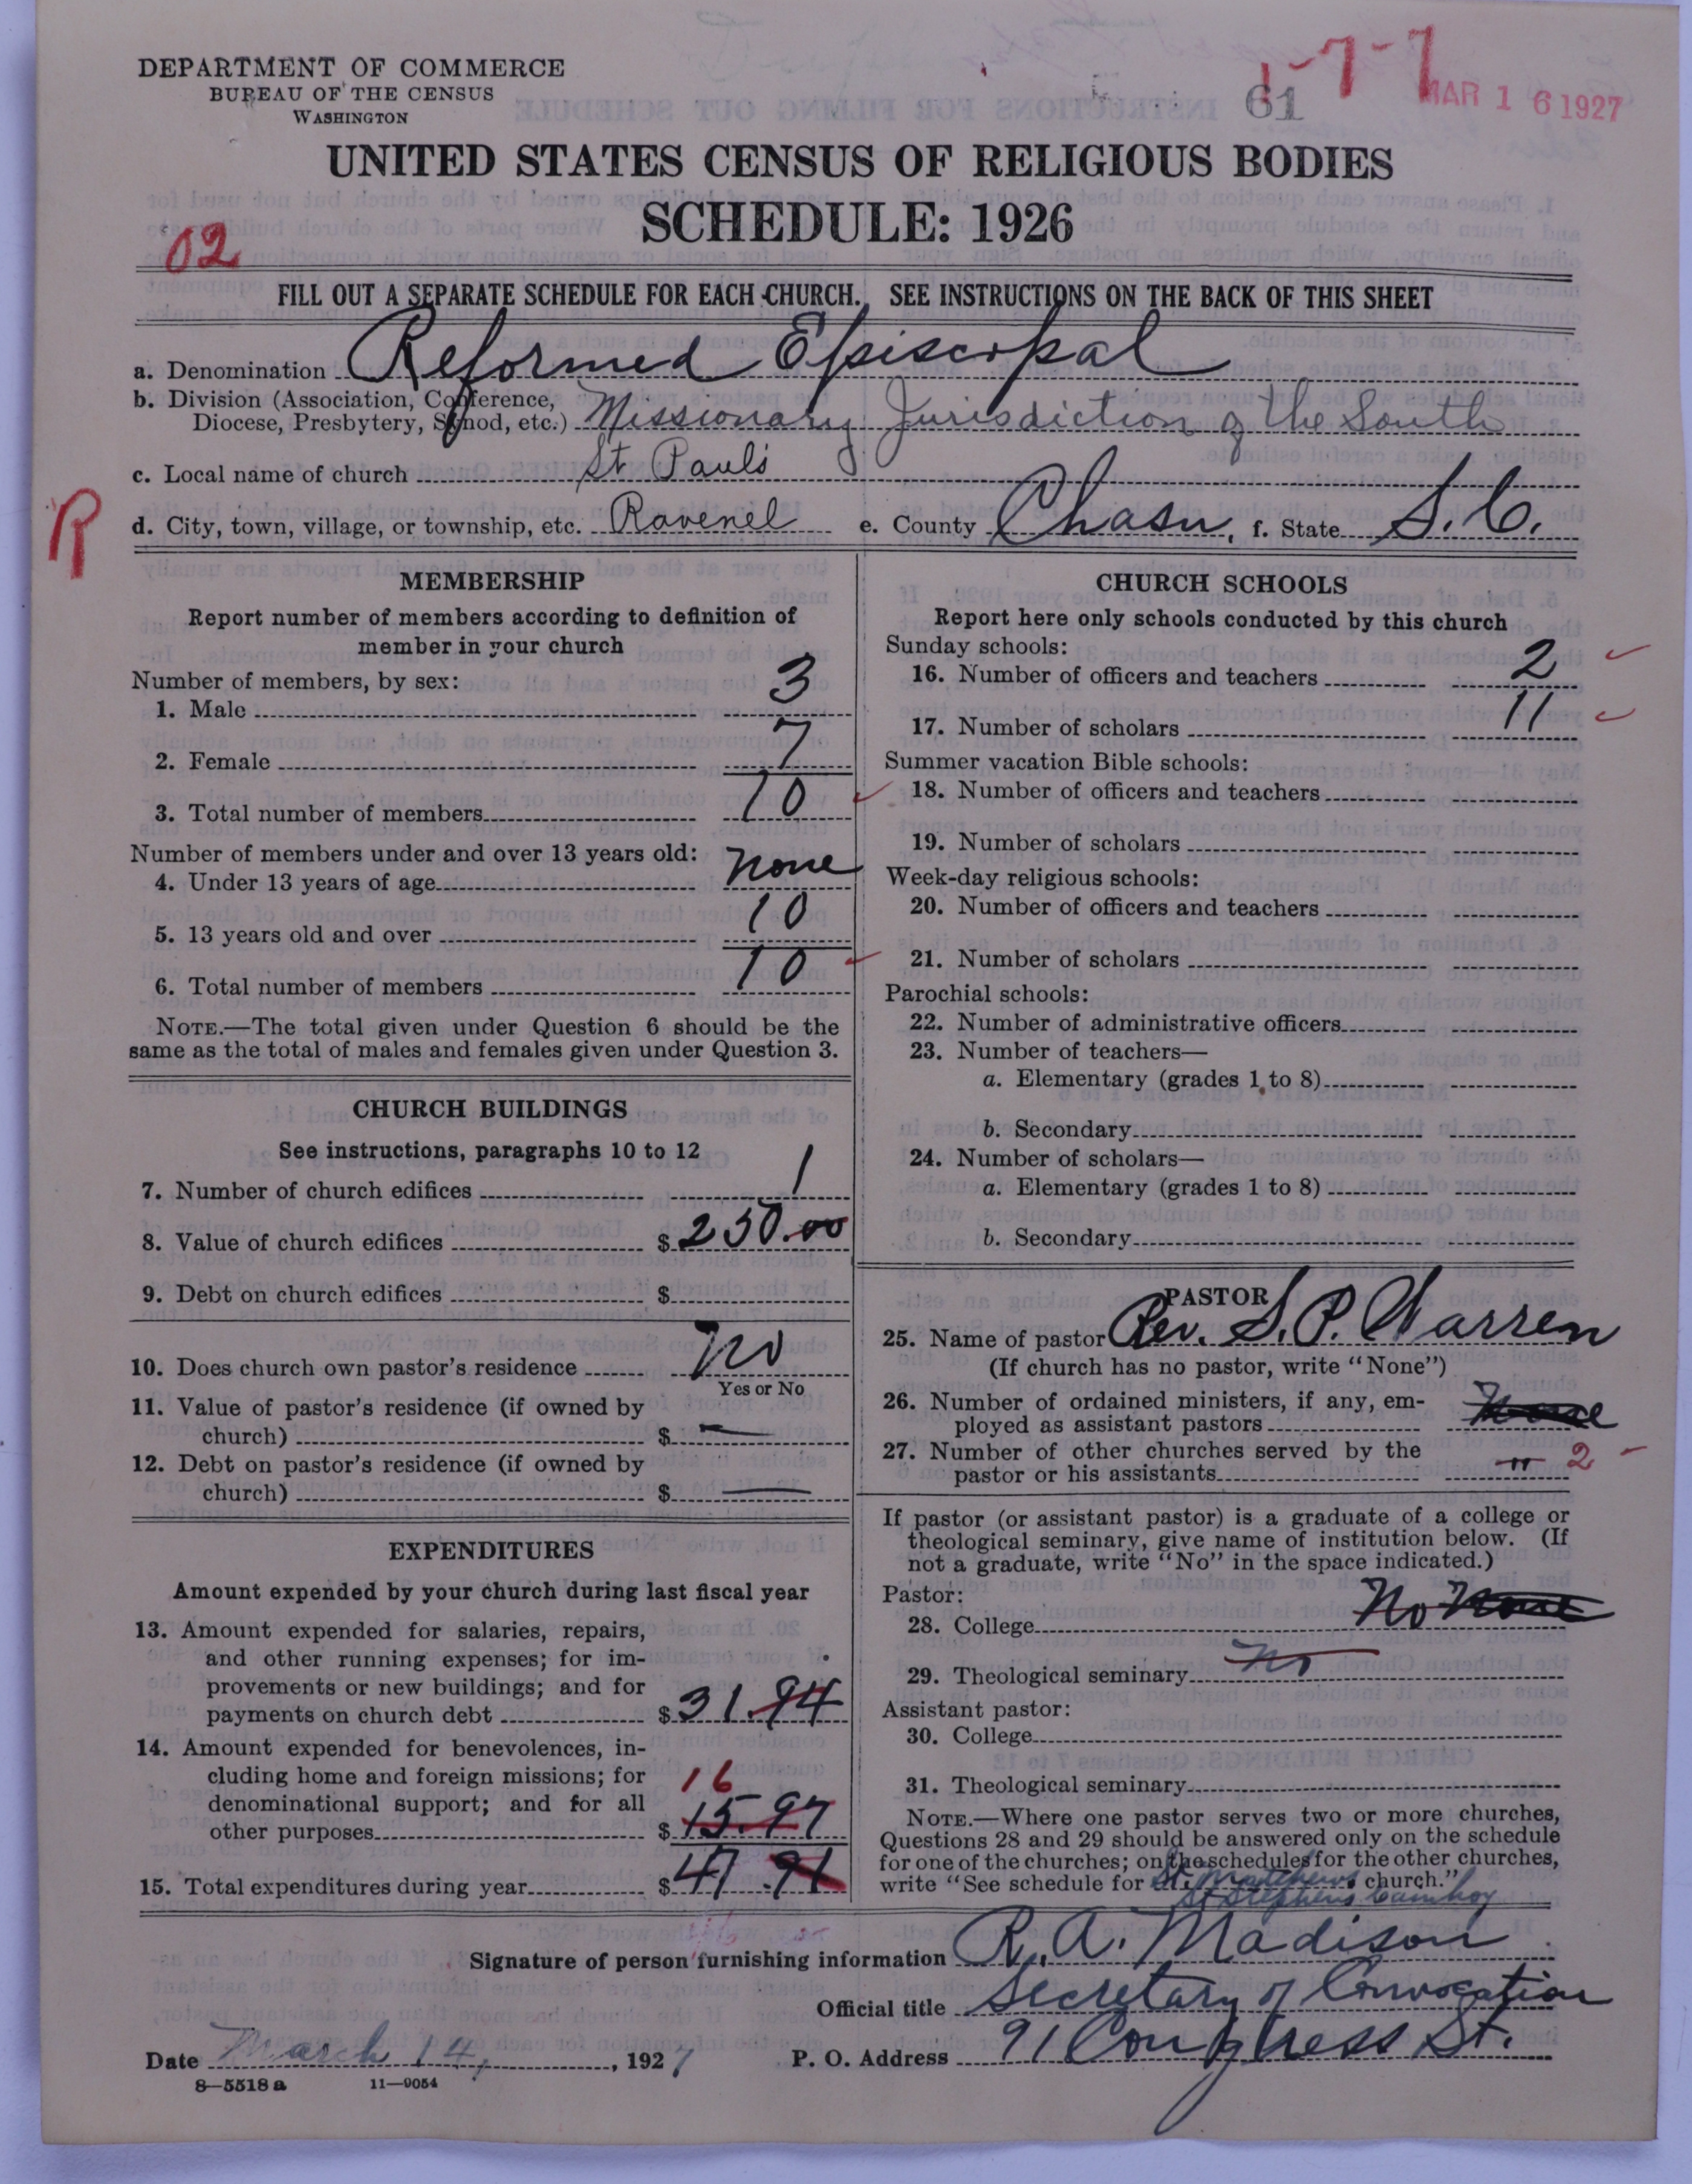 DEPARTMENT OF COMMERCE
BUREAU OF THE CENSUS
WASHINGTON
61
1-7-7
MAR 16 1927
UNITED STATES CENSUS OF RELIGIOUS BODIES
SCHEDULE: 1926
02
FILL OUT A SEPARATE SCHEDULE FOR EACH CHURCH. SEE INSTRUCTIONS ON THE BACK OF THIS SHEET
a. Denomination Reformed Episcopal
b. Division (Association, Conference,
Diocese, Presbytery, Synod, etc.) Missionary Jurisdiction of the South
c. Local name of church St Paul's
R
d. City, town, village, or township, etc. Ravenel e. County Chasn, f. State S. C.
MEMBERSHIP
Report number of members according to definition of
member in your church
Number of members, by sex:
1. Male 3
2. Female 7
3. Total number of members 10
Number of members under and over 13 years old:
4. Under 13 years of age none
5. 13 years old and over 10
6. Total number of members 10
NOTE.—The total given under Question 6 should be the
same as the total of males and females given under Question 3.
CHURCH BUILDINGS
See instructions, paragraphs 10 to 12
7. Number of church edifices 1
8. Value of church edifices $ 250.00
9. Debt on church edifices $
10. Does church own pastor's residence No
Yes or No
11. Value of pastor's residence (if owned by
church) $ —
12. Debt on pastor's residence (if owned by
church) $ —
EXPENDITURES
Amount expended by your church during last fiscal year
13. Amount expended for salaries, repairs,
and other running expenses; for im-
provements or new buildings; and for
payments on church debt $ 31.94
14. Amount expended for benevolences, in-
cluding home and foreign missions; for
denominational support; and for all
16
other purposes $ 15.97
15. Total expenditures during year $ 47.91
CHURCH SCHOOLS
Report here only schools conducted by this church
Sunday schools:
16. Number of officers and teachers 2
17. Number of scholars 11
Summer vacation Bible schools:
18. Number of officers and teachers
19. Number of scholars
Week-day religious schools:
20. Number of officers and teachers
21. Number of scholars
Parochial schools:
22. Number of administrative officers
23. Number of teachers—
a. Elementary (grades 1 to 8)
b. Secondary
24. Number of scholars—
a. Elementary (grades 1 to 8)
b. Secondary
PASTOR
25. Name of pastor Rev. S. P. Warren
(If church has no pastor, write "None")
26. Number of ordained ministers, if any, em-
ployed as assistant pastors None
27. Number of other churches served by the
pastor or his assistants " 2
If pastor (or assistant pastor) is a graduate of a college or
theological seminary, give name of institution below. (If
not a graduate, write "No" in the space indicated.)
Pastor:
28. College No None
29. Theological seminary No
Assistant pastor:
30. College
31. Theological seminary
NOTE.—Where one pastor serves two or more churches,
Questions 28 and 29 should be answered only on the schedule
for one of the churches; on the schedules for the other churches,
write "See schedule for St. Matthews church."
St Stephens Cainhoy
Signature of person furnishing information R. A. Madison
Official title Secretary of Convocation
Date March 14, 1927
P. O. Address 91 Congress St.
8—5518 a 11—9054